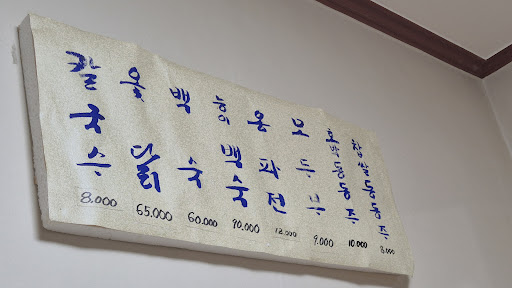 칼국수 8.000
옻닭 65.000
백숙 60.000
능의백숙 90.000
파전 12.000
모두부 9.000
호박동동주 10.000
찹쌀동동주 8.000